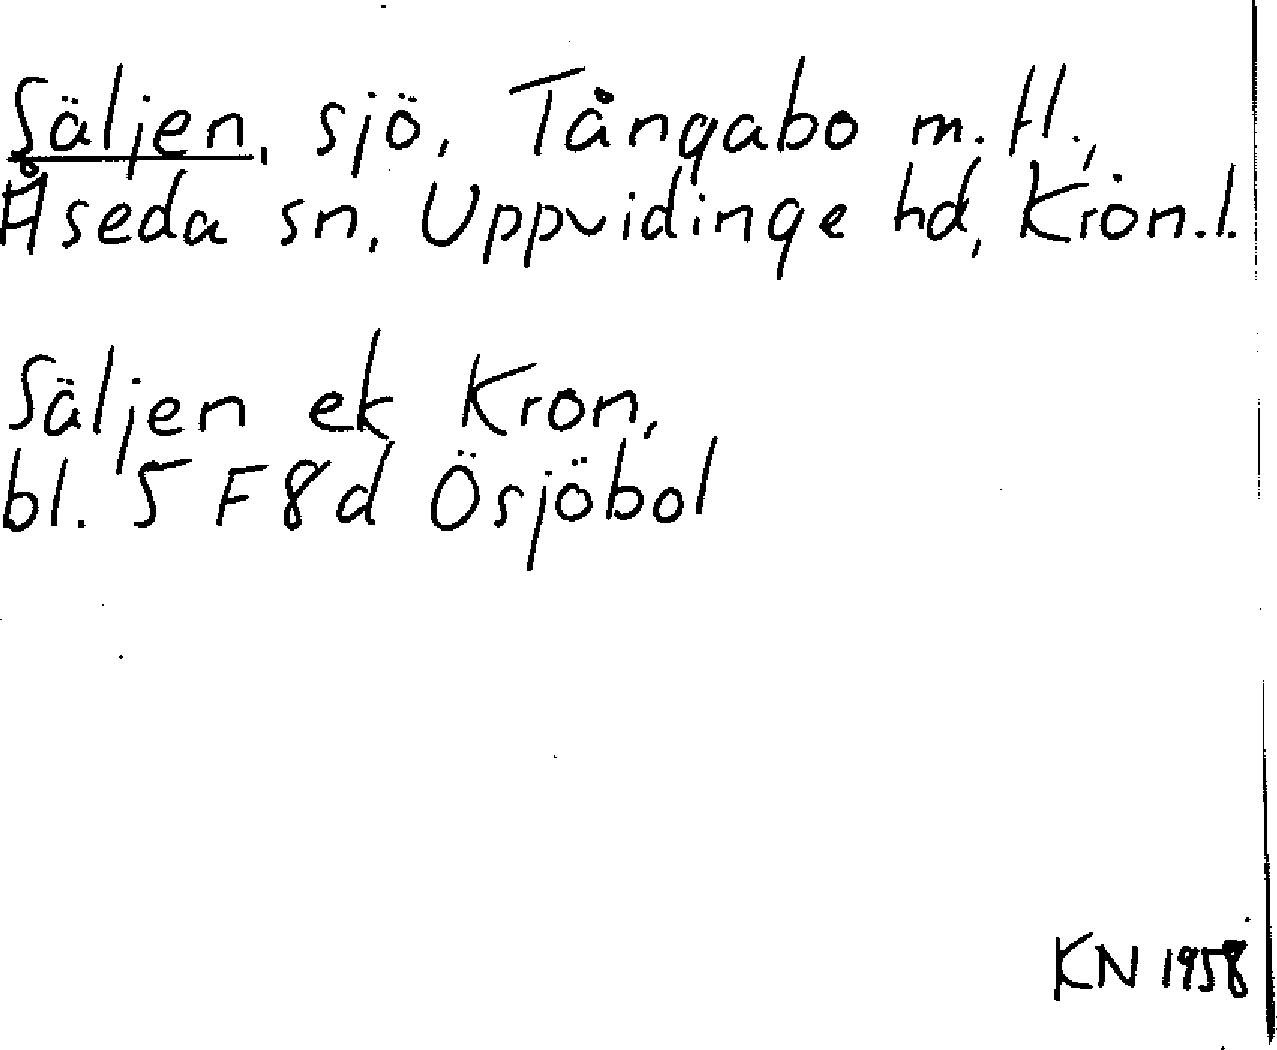 Säljen, sjö, Tångabo m.fl.,
Åseda sn, Uppvidinge hd, Kron.l.
Säljen ek Kron,
bl. 5 F 8d Ösjöbol
KN 1958